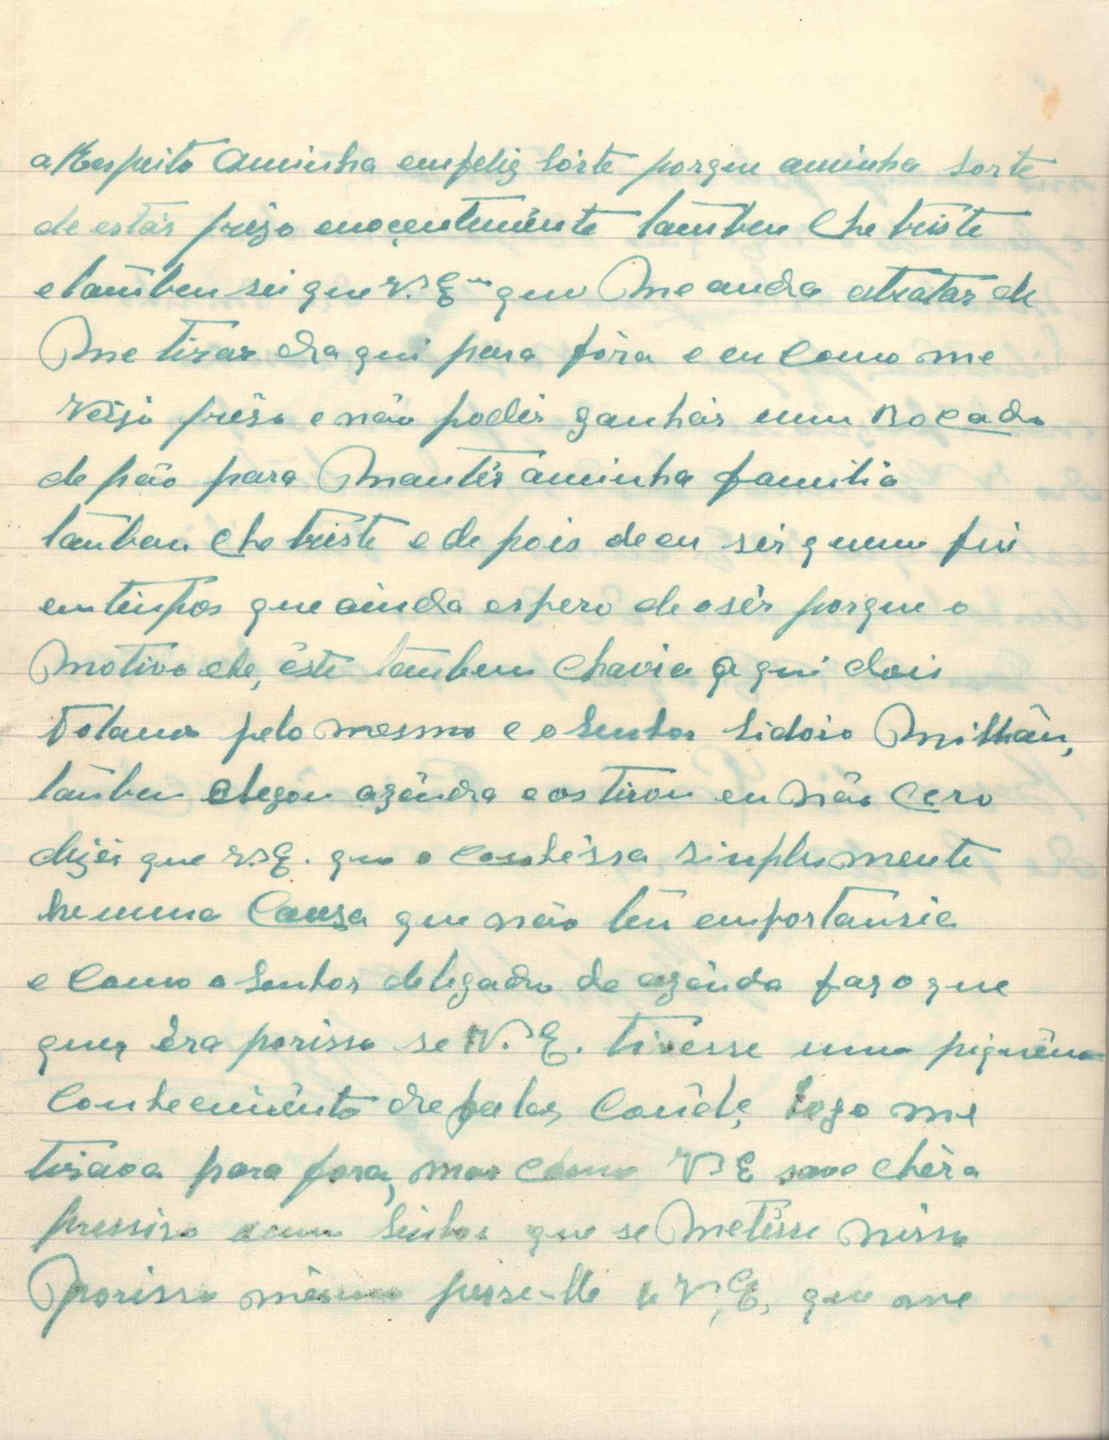 a Respeito aminha emfeliz sórte porque aminha sorte
de estár prêso enoçentemênte tambem he triste
e tãmbem sei que V. Ex que me anda atratar de
me tirar da qui para fóra e eu como me
veijo prêso e não podêr ganhár um Bocado
de pão para mantêr aminha familia
tãmbem he triste e de pois de eu sêr quem fui
em tempos que ainda espero de o sêr porque o
motivo de, êste tãmbem havia a qui dois
pelo mesmo e o Senhor Sidoio Milhãn,
tãmbem chegou azênda e os tirou eu não cero
dizêr que V. E. que o conhéssa simplesmente
he uma Cauza que não tem emportânsia
e como o Senhor delegado da azênda faz o que
quer éra porisso se V. E. tivesse uma piquêna
conhecimênto de falar com êle, logo me
tirava para fora, mas como V E save héra
pressizo um Senhor que se metêsse nisso
porisso mêsmo pesse-lhe a V. E. que me